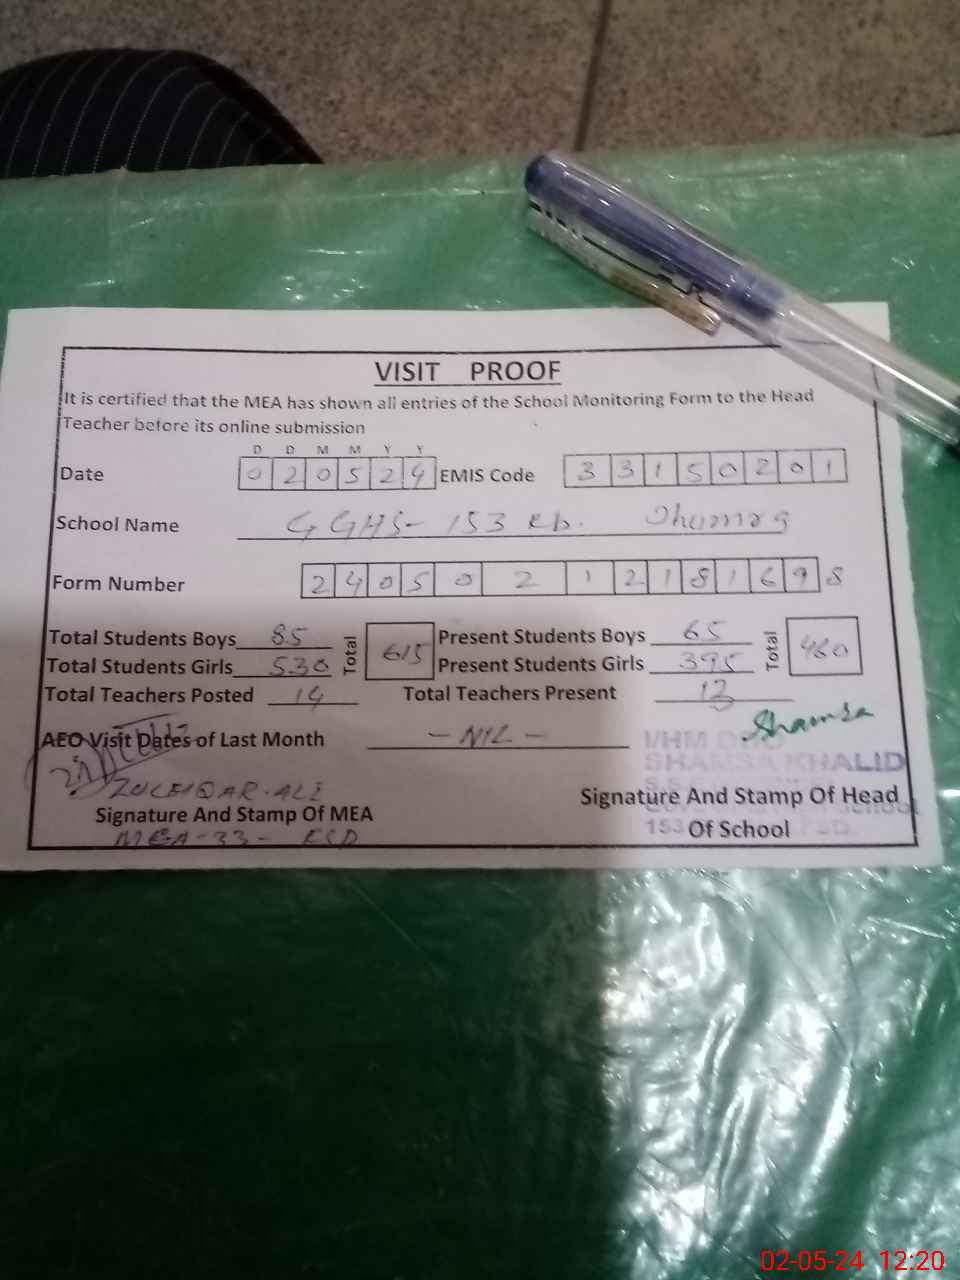 VISIT PROOF
It is certified that the MEA has shown all entries of the School Monitoring Form to the Head
Teacher before its online submission
D D M M Y Y
Date 0 2 0 5 2 4 EMIS Code 3 3 1 5 0 2 0 1
School Name GGHS- 153 RB.
Form Number 2 4 0 5 0 2 1 2 1 8 1 6 9 8
Total Students Boys 85 Total 615 Present Students Boys 65 Total 460
Total Students Girls 530 Present Students Girls 395
Total Teachers Posted 14 Total Teachers Present 13
AEO Visit Dates of Last Month - NIL -
Shamsa
I/HM
SHAMSA KHALID
ZULFIQAR ALI
Signature And Stamp Of MEA
MEA-33- FSD
Signature And Stamp Of Head
School
153
Of School
FSD.
02-05-24 12:20